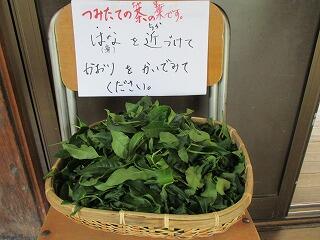 つみたての茶の葉です。
はな(鼻)を近(ちか)づけて
かおりをかいでみて
ください。